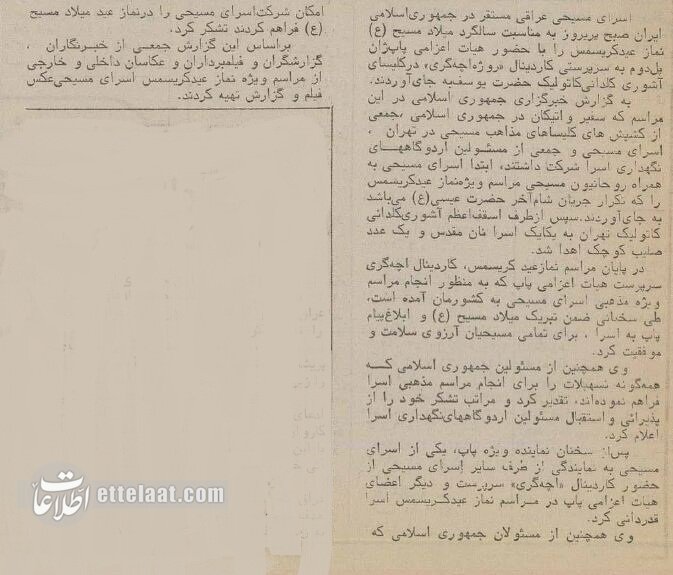 اسرای مسیحی عراقی مستقر در جمهوری‌اسلامی
ایران صبح پریروز به مناسبت سالگرد میلاد مسیح (ع)
نماز عیدکریسمس را با حضور هیات اعزامی پاپ‌ژان
پل‌دوم به سرپرستی کاردینال «روژه‌اچه‌گری» درکلیسای
آشوری کلدانی‌کاتولیک حضرت یوسف‌به جای‌آوردند.
به گزارش خبرگزاری جمهوری اسلامی در این
مراسم که سفیر واتیکان در جمهوری اسلامی ،جمعی
از کشیش های کلیساهای مذاهب مسیحی در تهران ،
اسرای مسیحی و جمعی از مسئولین اردوگاههای
نگهداری اسرا شرکت داشتند، ابتدا اسرای مسیحی به
همراه روحانیون مسیحی مراسم ویژه‌نماز عیدکریسمس
را که تکرار جریان شام‌آخر حضرت عیسی(ع) می‌باشد
به جای‌آوردند.سپس ازطرف اسقف‌اعظم آشوری‌کلدانی
کاتولیک تهران به یکایک اسرا نان مقدس و یک عدد
صلیب کوچک اهدا شد.
در پایان مراسم نمازعید کریسمس، کاردینال اچه‌گری
سرپرست هیات اعزامی پاپ که به منظور انجام مراسم
ویژه مذهبی اسرای مسیحی به کشورمان آمده است،
طی سخنانی ضمن تبریک میلاد مسیح (ع) و ابلاغ‌پیام
پاپ به اسرا ، برای تمامی مسیحیان آرزوی سلامت و
موفقیت کرد.
وی همچنین از مسئولین جمهوری اسلامی کـه
همه‌گونه تسهیلات را برای انجام مراسم مذهبی اسرا
فراهم نموده‌اند، تقدیر کرد و مراتب تشکر خود را از
پذیرائی و استقبال مسئولین اردوگاههای‌نگهداری اسرا
اعلام کرد.
پس‌از سخنان نماینده ویژه پاپ، یکی از اسرای
مسیحی به نمایندگی از طرف سایر اسرای مسیحی از
حضور کاردینال «اچه‌گری» سرپرست و دیگر اعضای
هیات اعزامی پاپ در مراسم نماز عیدکریسمس اسرا
قدردانی کرد.
وی همچنین از مسئولان جمهوری اسلامی که
امکان شرکت‌اسرای مسیحی را درنماز عید میلاد مسیح
(ع) فراهم کردند تشکر کرد.
براساس این گزارش جمعی از خبرنگاران ،
گزارشگران و فیلمبرداران و عکاسان داخلی و خارجی
از مراسم ویژه نماز عیدکریسمس اسرای مسیحی‌عکس
فیلم و گزارش تهیه کردند.
اطلاعات ettelaat.com